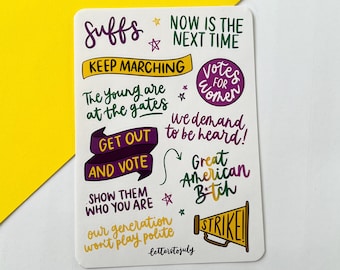 Suffs
NOW IS THE
NEXT TIME
KEEP MARCHING
Votes
FOR
Women
The young are
at the gates
We demand
to be heard!
GET OUT
AND VOTE
Great
American
B*tch
SHOW THEM
WHO YOU ARE
STRIKE!
our generation
won't play polite
letterstojuly